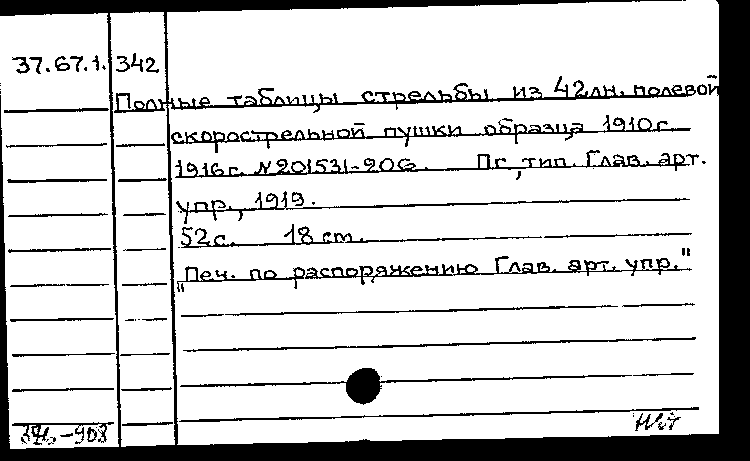 37.67.1. 342
Полные таблицы стрельбы из 42лн. полевой
скорострельной пушки образца 1910г.
1916г. №201531-20G. Пг, тип. Глав. арт.
упр., 1919.
52с. 18 cm.
"Печ. по распоряжению Глав. арт. упр."